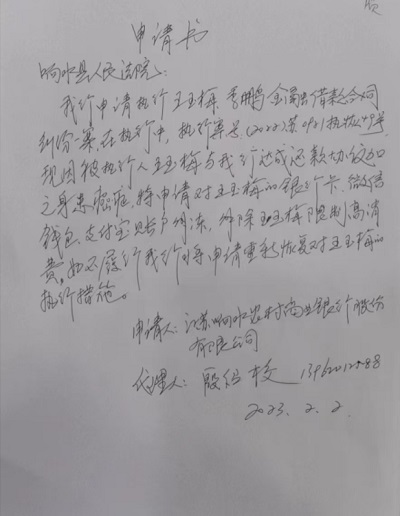 申请书
响水县人民法院:
我行申请执行王玉梅、李鹏金融借款合同
纠纷一案在执行中,执行案号(2022)苏0921执恢49号,
现因被执行人王玉梅与我行达成还款协议
之身患 特申请对王玉梅的银行卡、微信
钱包、支付宝账户 冻,解除王玉梅限制高消
费,如不履行我行将申请重新恢复对王玉梅的
执行措施。
申请人:江苏响水农村商业银行股份
有限公司
代理人:殷 
2023.2.2